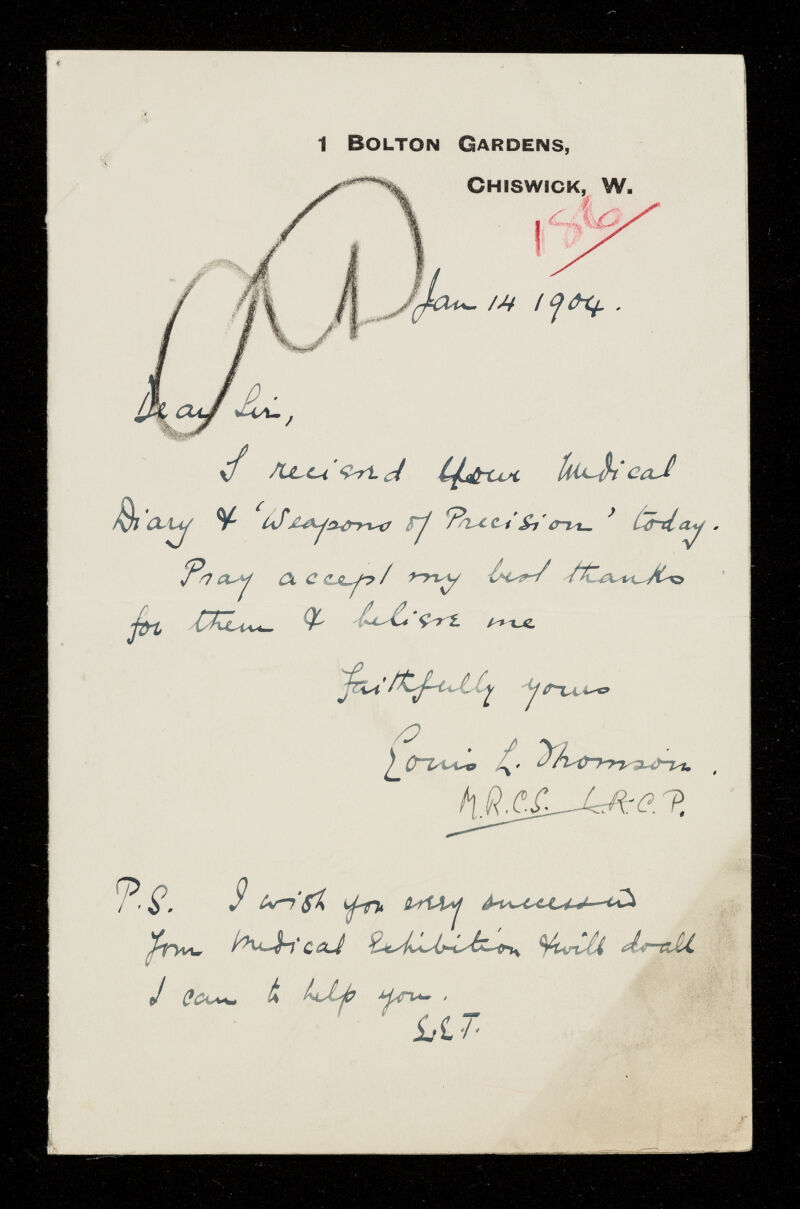 1 BOLTON GARDENS,
CHISWICK, W.
186
Jan 14 1904.
Dear Sir,
I recieved your Medical
Diary & 'Weapons of Precision' today.
Pray accept my best thanks
for them & believe me
Faithfully yours
Louis L. Thomson.
M.R.C.S. L.R.C.P.
P.S. I wish you every success in
your Medical Exhibition & will do all
I can to help you.
L.L.T.